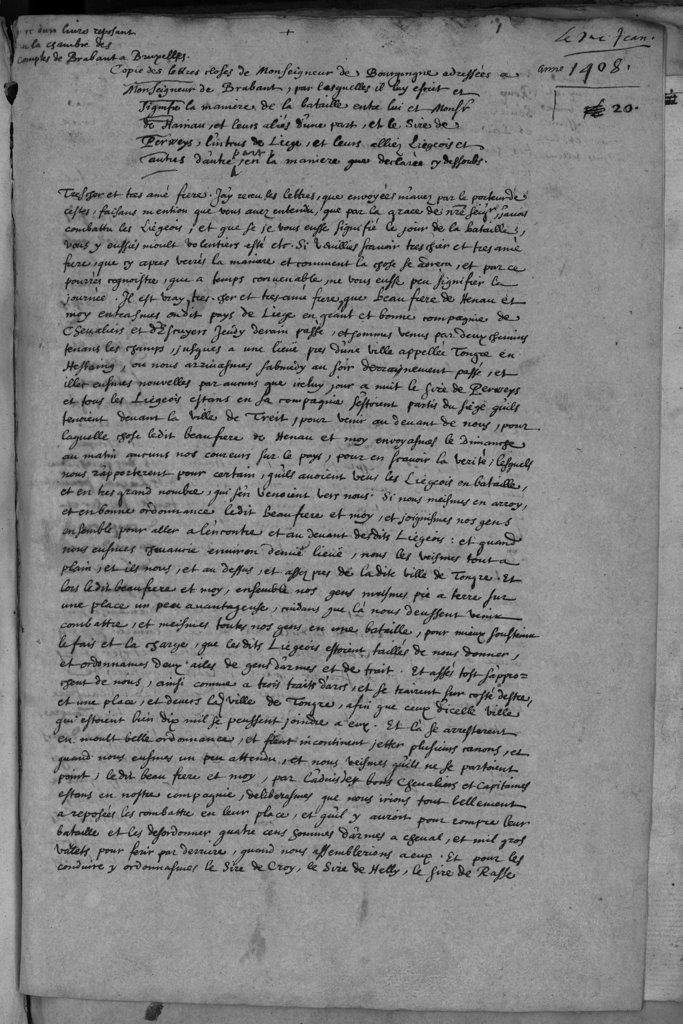 d'un livre reposant
a la chambre des
Comptes de Brabant a Bruxelles.
Le Duc Jean.
anno 1408.
20.
Copie des lettres closes de Monseigneur de Bourgongne adressées a
Monseigneur de Brabant, par lesquelles il luy escrit et
signifie la maniere de la bataille entre lui et Monsr
de Hainau, et leurs aliés d'une part, et le Sire de
Perweys, l'intrus de Liege, et leurs alliez Liegeois et
autres d'autre part, en la maniere que declarée cy dessoubs.
Treschier et tres amé frere. J'ay receu les lettres, que envoyées m'avez par le porteur de
cestes, faisans mention que vous avez entendu, que par la grace de nre Seigr, j'avais
combattu les Liégeois, et que se je vous eusse signifié le jour de la bataille,
vous y eussiés moult volentiers esté etc. Si veuilles scavoir tres chier et tres amé
frere, que cy apres verrés la maniere et comment la chose se adrera, et par ce
pourrés cognoistre, que a temps convenable, ne vous eusse peu signifier la
journée. Il est vray, tres-cher et tres amé frere, que beau frere de Henau et
moy entrasmes ou dit pays de Liege en grant et bonne compagnie de
Chevaliers et d'Escuyers Jeudy derain passé, et sommes venus par deux chemins
tenans les champs, jusques a une lieue pres d'une ville appellée Tongre en
Hesbaing, ou nous arrivasmes sabmedy au soir derrainement passé, et
illec eusmes nouvelles par aucuns que iceluy jour a nuit le Sire de Perweys
et tous les Liégeois estans en sa compagnie s'estoient partis du siége qu'ils
tenoient devant la ville de Treit, pour venir au devant de nous, pour
laquelle chose ledit beau frere de Henau et moy envoyasmes le dimanche
au matin aucuns nos coureurs sur le pays, pour en scavoir la verité; lesquels
nous rapporterent pour certain, qu'ils avoient veus les Liegeois en bataille,
et en tres grand nombre, qui s'en venoient vers nous. Si nous meismes en arroy,
et en bonne ordonnance ledit beau frere et moy, et joignismes nos gens
ensemble pour aller a l'encontre et au devant desdits Liégeois: et quand
nous eusmes chevauchié environ demie lieue, nous les veismes tout a
plain, et ils nous, et au dessus, et assez pres de la dite ville de Tongre. Et
lors ledit beau frere et moy, ensemble nos gens meismes pié a terre sur
une place un peu avantageuse, cuidans que là nous deussent venir
combattre, et meismes toutes nos gens en une bataille, pour mieux soustenir
le fais et la charge, que lesdits Liégeois estoient taillés de nous donner,
et ordonnames deux ailes de gens d'armes et de trait. Et assés tost s'appro-
cherent de nous, ainsi comme a trois traits d'arcs, et se trairent sur costé destre,
et une place, et devers lad. ville de Tongre, afin que ceux d'icelle ville
qui estoient bien dix mil se peussent joindre a eux. Et la se arresterent
en moult belle ordonnance, et firent incontinent jetter plusieurs canons, et
quand nous eusmes un peu attendu, et nous veismes qu'ils ne se partoient
point, ledit beau frere et moy, par l'advis des bons Chevaliers et Capitaines
estans en nostre compagnie, deliberasmes que nous irions tout bellement
a reposées les combattre en leur place, et qu'il y auroit pour rompre leur
bataille et les desordonner quatre cens hommes d'armes a cheval, et mil gros
valets, pour ferir par derriere, quand nous assemblerions a eux. Et pour les
conduire y ordonnasmes le Sire de Croy, le Sire de Helly, le Sire de Rasse